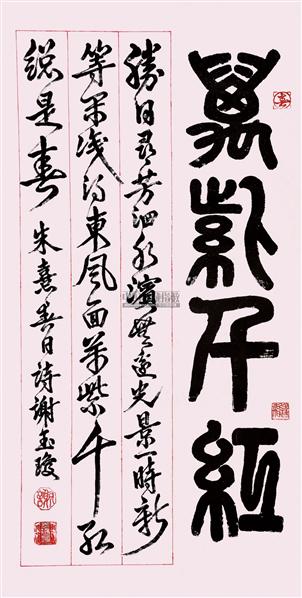 萬紫千紅
勝日尋芳泗水濱無邊光景一時新
等閒識得東風面萬紫千紅
總是春 朱熹春日詩謝玉瓊